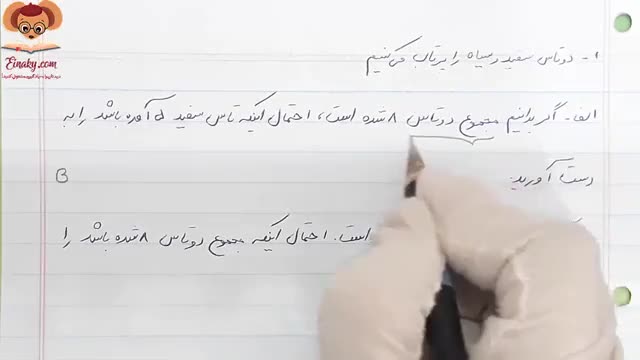 Einaky.com
۱- دو تاس سفید و سیاه را پرتاب می‌کنیم
الف- اگر بدانیم مجموع دو تاس ۸ شده است، احتمال اینکه تاس سفید ۵ آمده باشد را به
دست آورید.
B
است. احتمال اینکه مجموع دو تاس ۸ شده باشد را